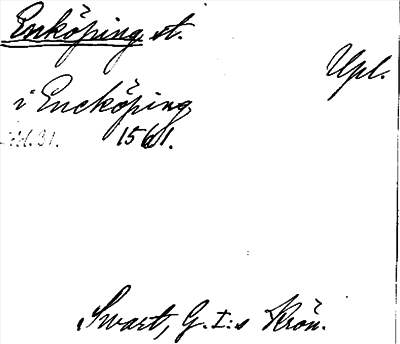 Enköping st.
Upl.
i Encköping
1561.
Swart, G. I:s Krön.